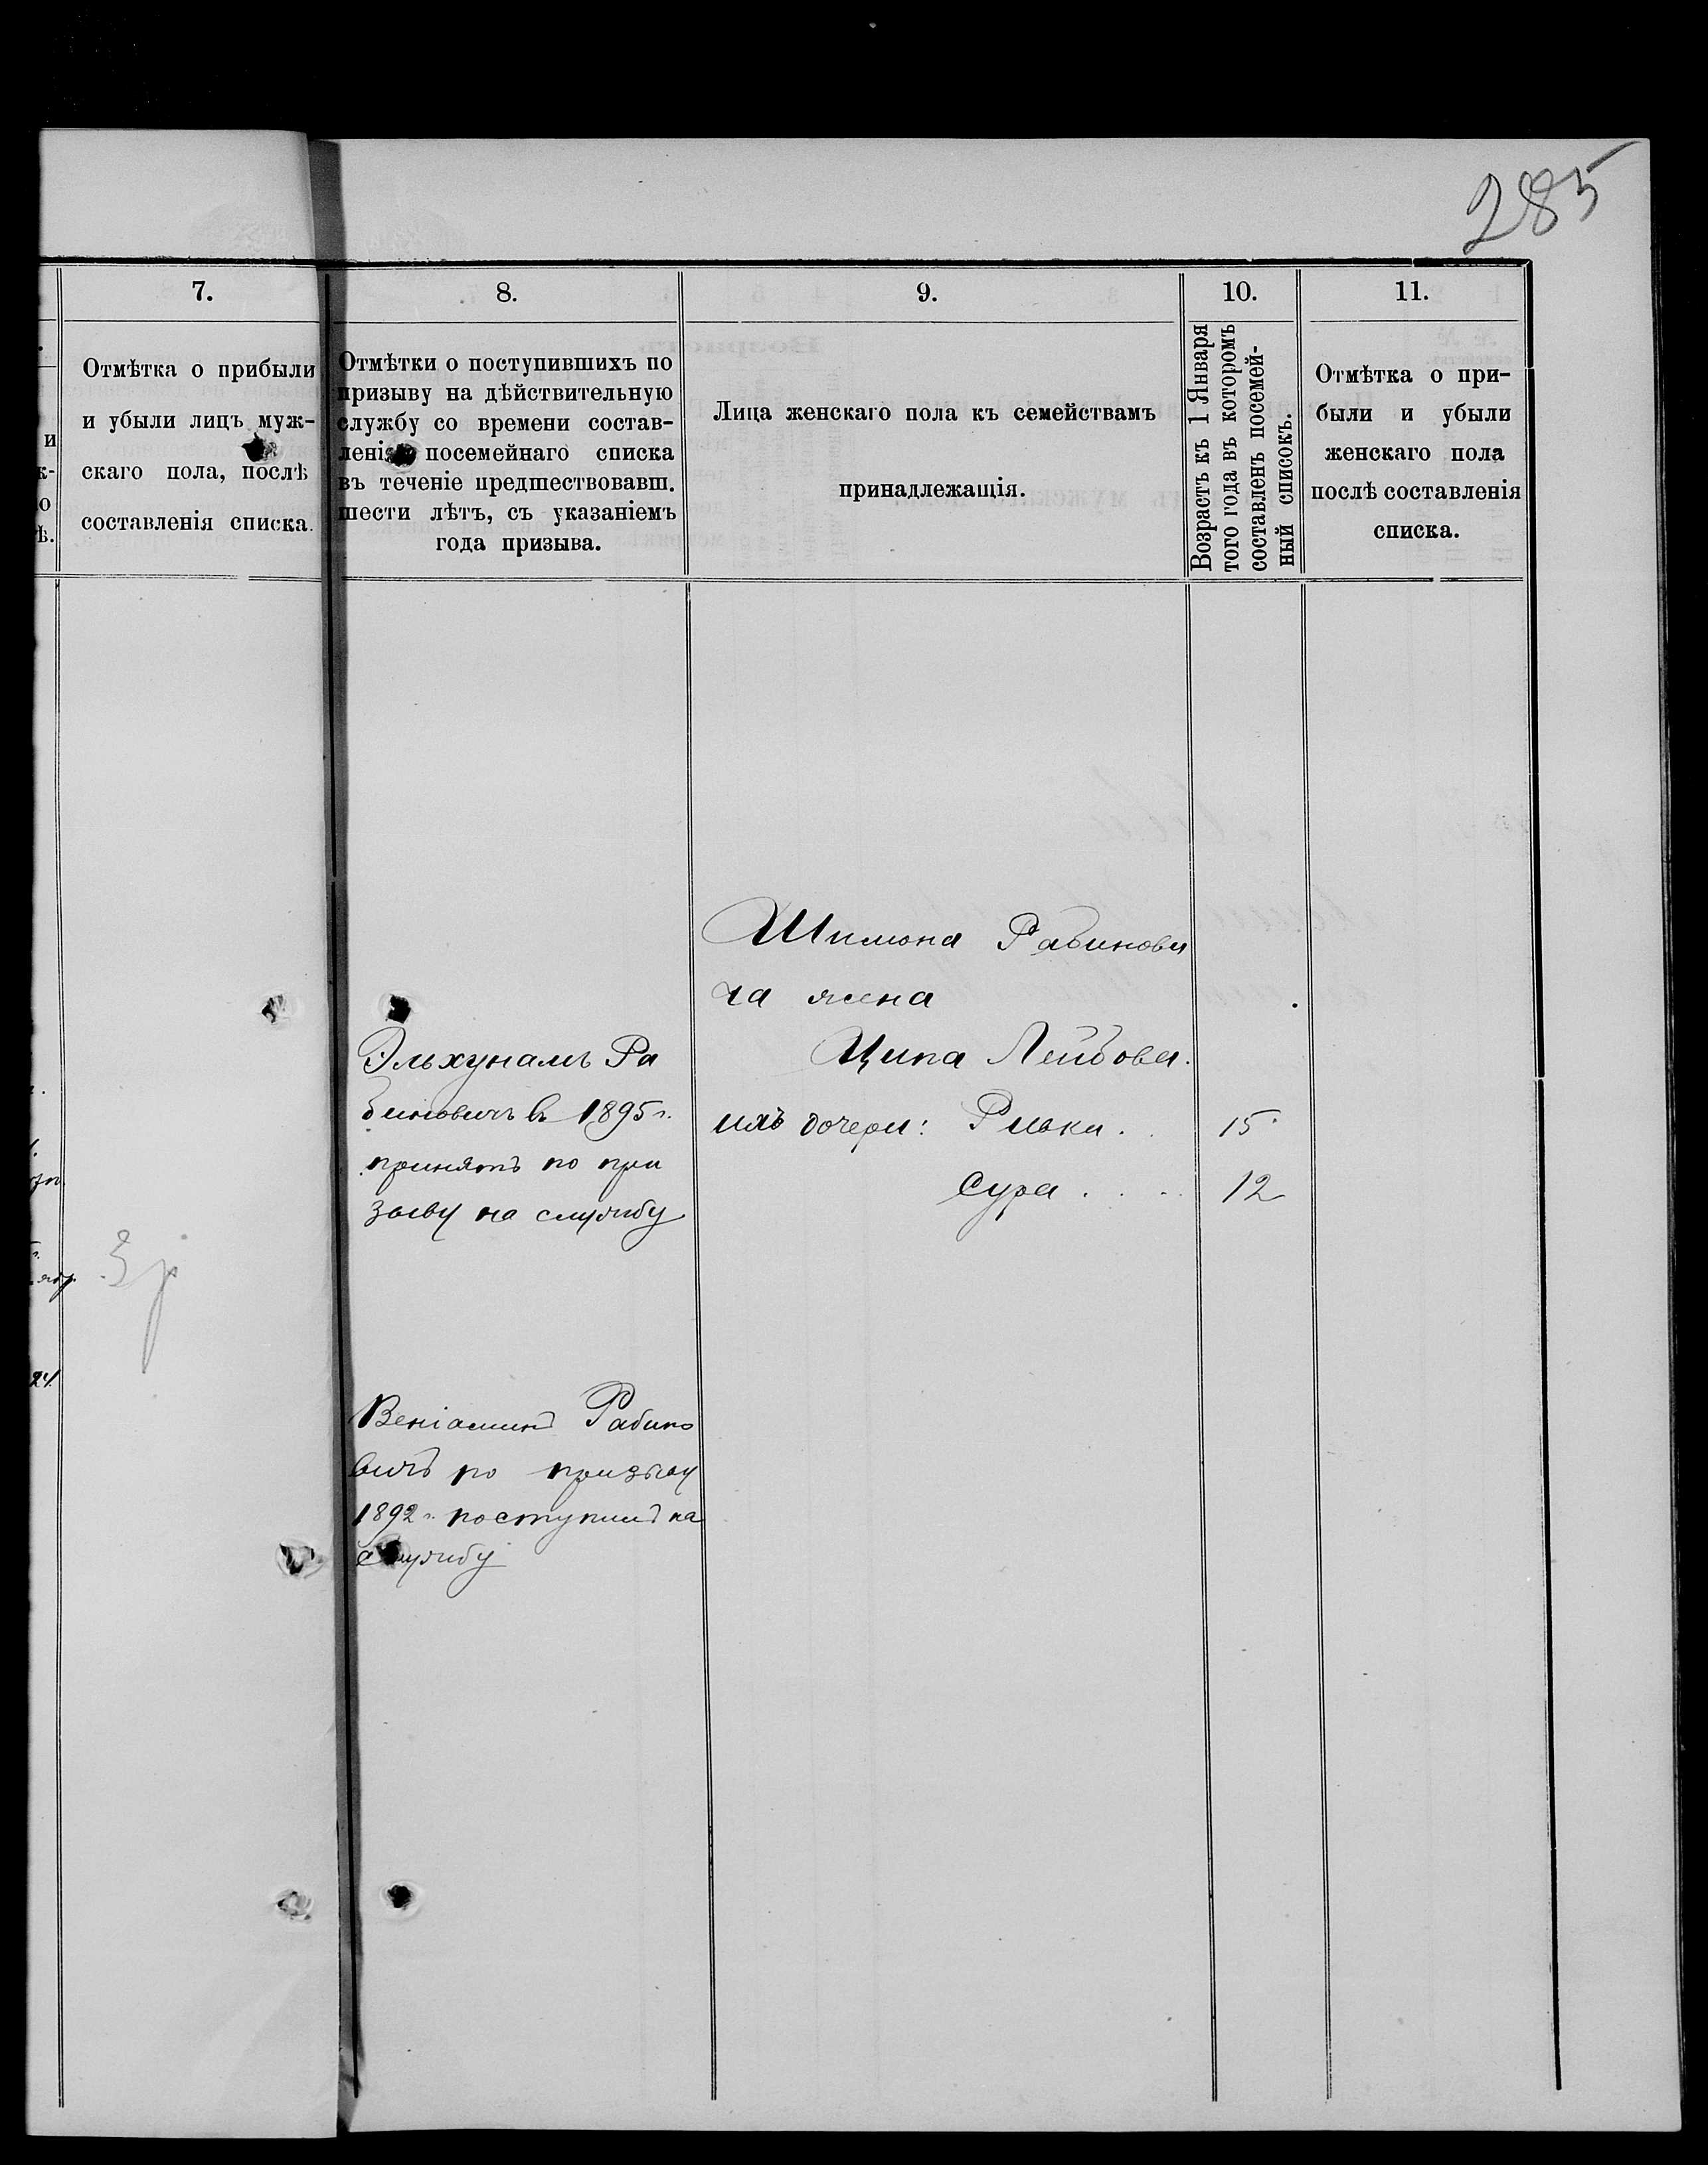 285
7.
8.
9.
10.
11.
Отмѣтка о прибыли
и убыли лицъ муж-
скаго пола, послѣ
составленія списка.
Отмѣтки о поступившихъ по
призыву на дѣйствительную
службу со времени состав-
ленія посемейнаго списка
въ теченіе предшествовавш.
шести лѣтъ, съ указаніемъ
года призыва.
Лица женскаго пола къ семействамъ
принадлежащія.
Возрастъ къ 1 Января
того года въ которомъ
составленъ посемей-
ный списокъ.
Отмѣтка о при-
были и убыли
женскаго пола
послѣ составленія
списка.
Эльхунамъ Ра
биновичъ въ 1895 г.
принятъ по при
зыву на службу
Веніаминъ Рабино
вичъ по призыву
1892 г. поступилъ на
службу
Шимона Рабинови
ча жена
Ципа Лейбова.
ихъ дочери: Ривка . . 15
Сура . . . . 12